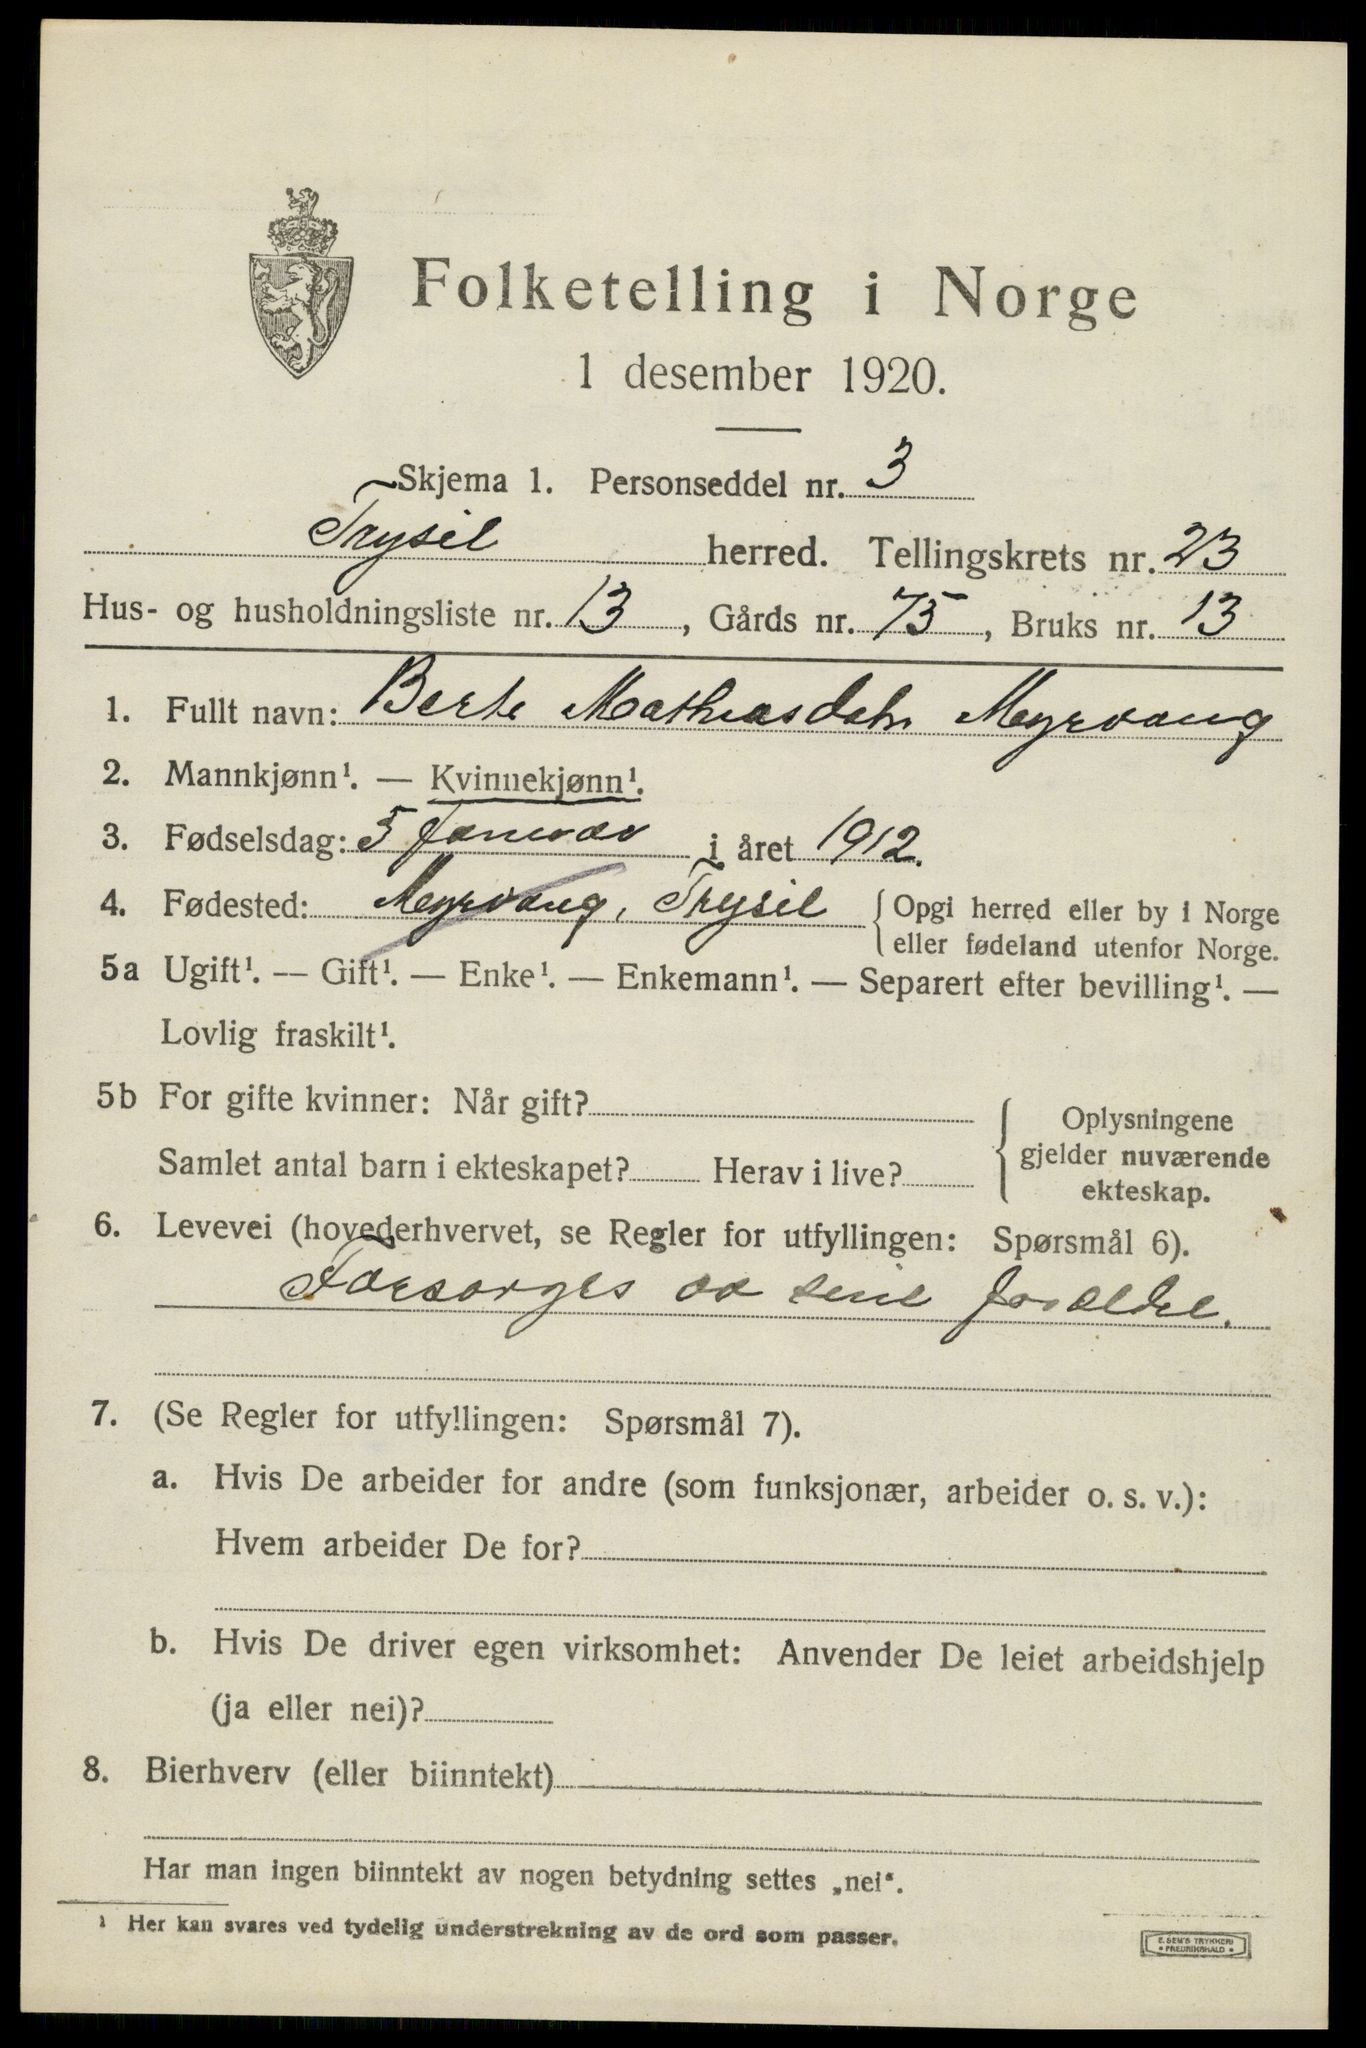 Folketelling i Norge
1 desember 1920.
Skjema 1. Personseddel nr. 3
Trysil herred. Tellingskrets nr. 23
Hus- og husholdningsliste nr. 13, Gårds nr. 75, Bruks nr. 13
1. Fullt navn: Berte Mathiasdatr Myrvang
2. Mannkjønn¹. — Kvinnekjønn¹.
3. Fødselsdag: 5 Januar i året 1912.
4. Fødested: Myrvang, Trysil { Opgi herred eller by i Norge
eller fødeland utenfor Norge.
5a Ugift¹. — Gift¹. — Enke¹. — Enkemann¹. — Separert efter bevilling¹. —
Lovlig fraskilt¹.
5b For gifte kvinner: Når gift?
Samlet antal barn i ekteskapet? Herav i live?
Oplysningene
gjelder nuværende
ekteskap.
6. Levevei (hovederhvervet, se Regler for utfyllingen: Spørsmål 6).
Forsørges av sine
7. (Se Regler for utfyllingen: Spørsmål 7).
a. Hvis De arbeider for andre (som funksjonær, arbeider o. s. v.):
Hvem arbeider De for?
b. Hvis De driver egen virksomhet: Anvender De leiet arbeidshjelp
(ja eller nei)?
8. Bierhverv (eller biinntekt)
Har man ingen biinntekt av nogen betydning settes „nei“.
¹ Her kan svares ved tydelig understrekning av de ord som passer.
E. SEM'S TRYKKERI
• FREDRIKSHALD •